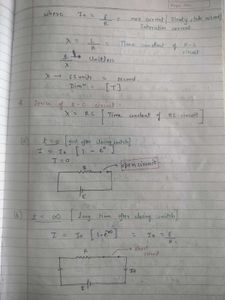 where I₀ = E/R = max current [Steady state current]
Saturation current
λ = L/R = Time constant of R-L
circuit
Unitless
λ → SI units = second
Dimⁿ: [T]
circuit :
λ = RC [Time constant of RC circuit]
(a) t = 0 [just after closing switch]
I = I₀ [1 - e⁰]
I = 0
R
open circuit
E
(b) t = ∞ [long time after closing switch]
I = I₀ [1 - e^∞] = I₀ = E/R
R
short
circuit
I₀
E